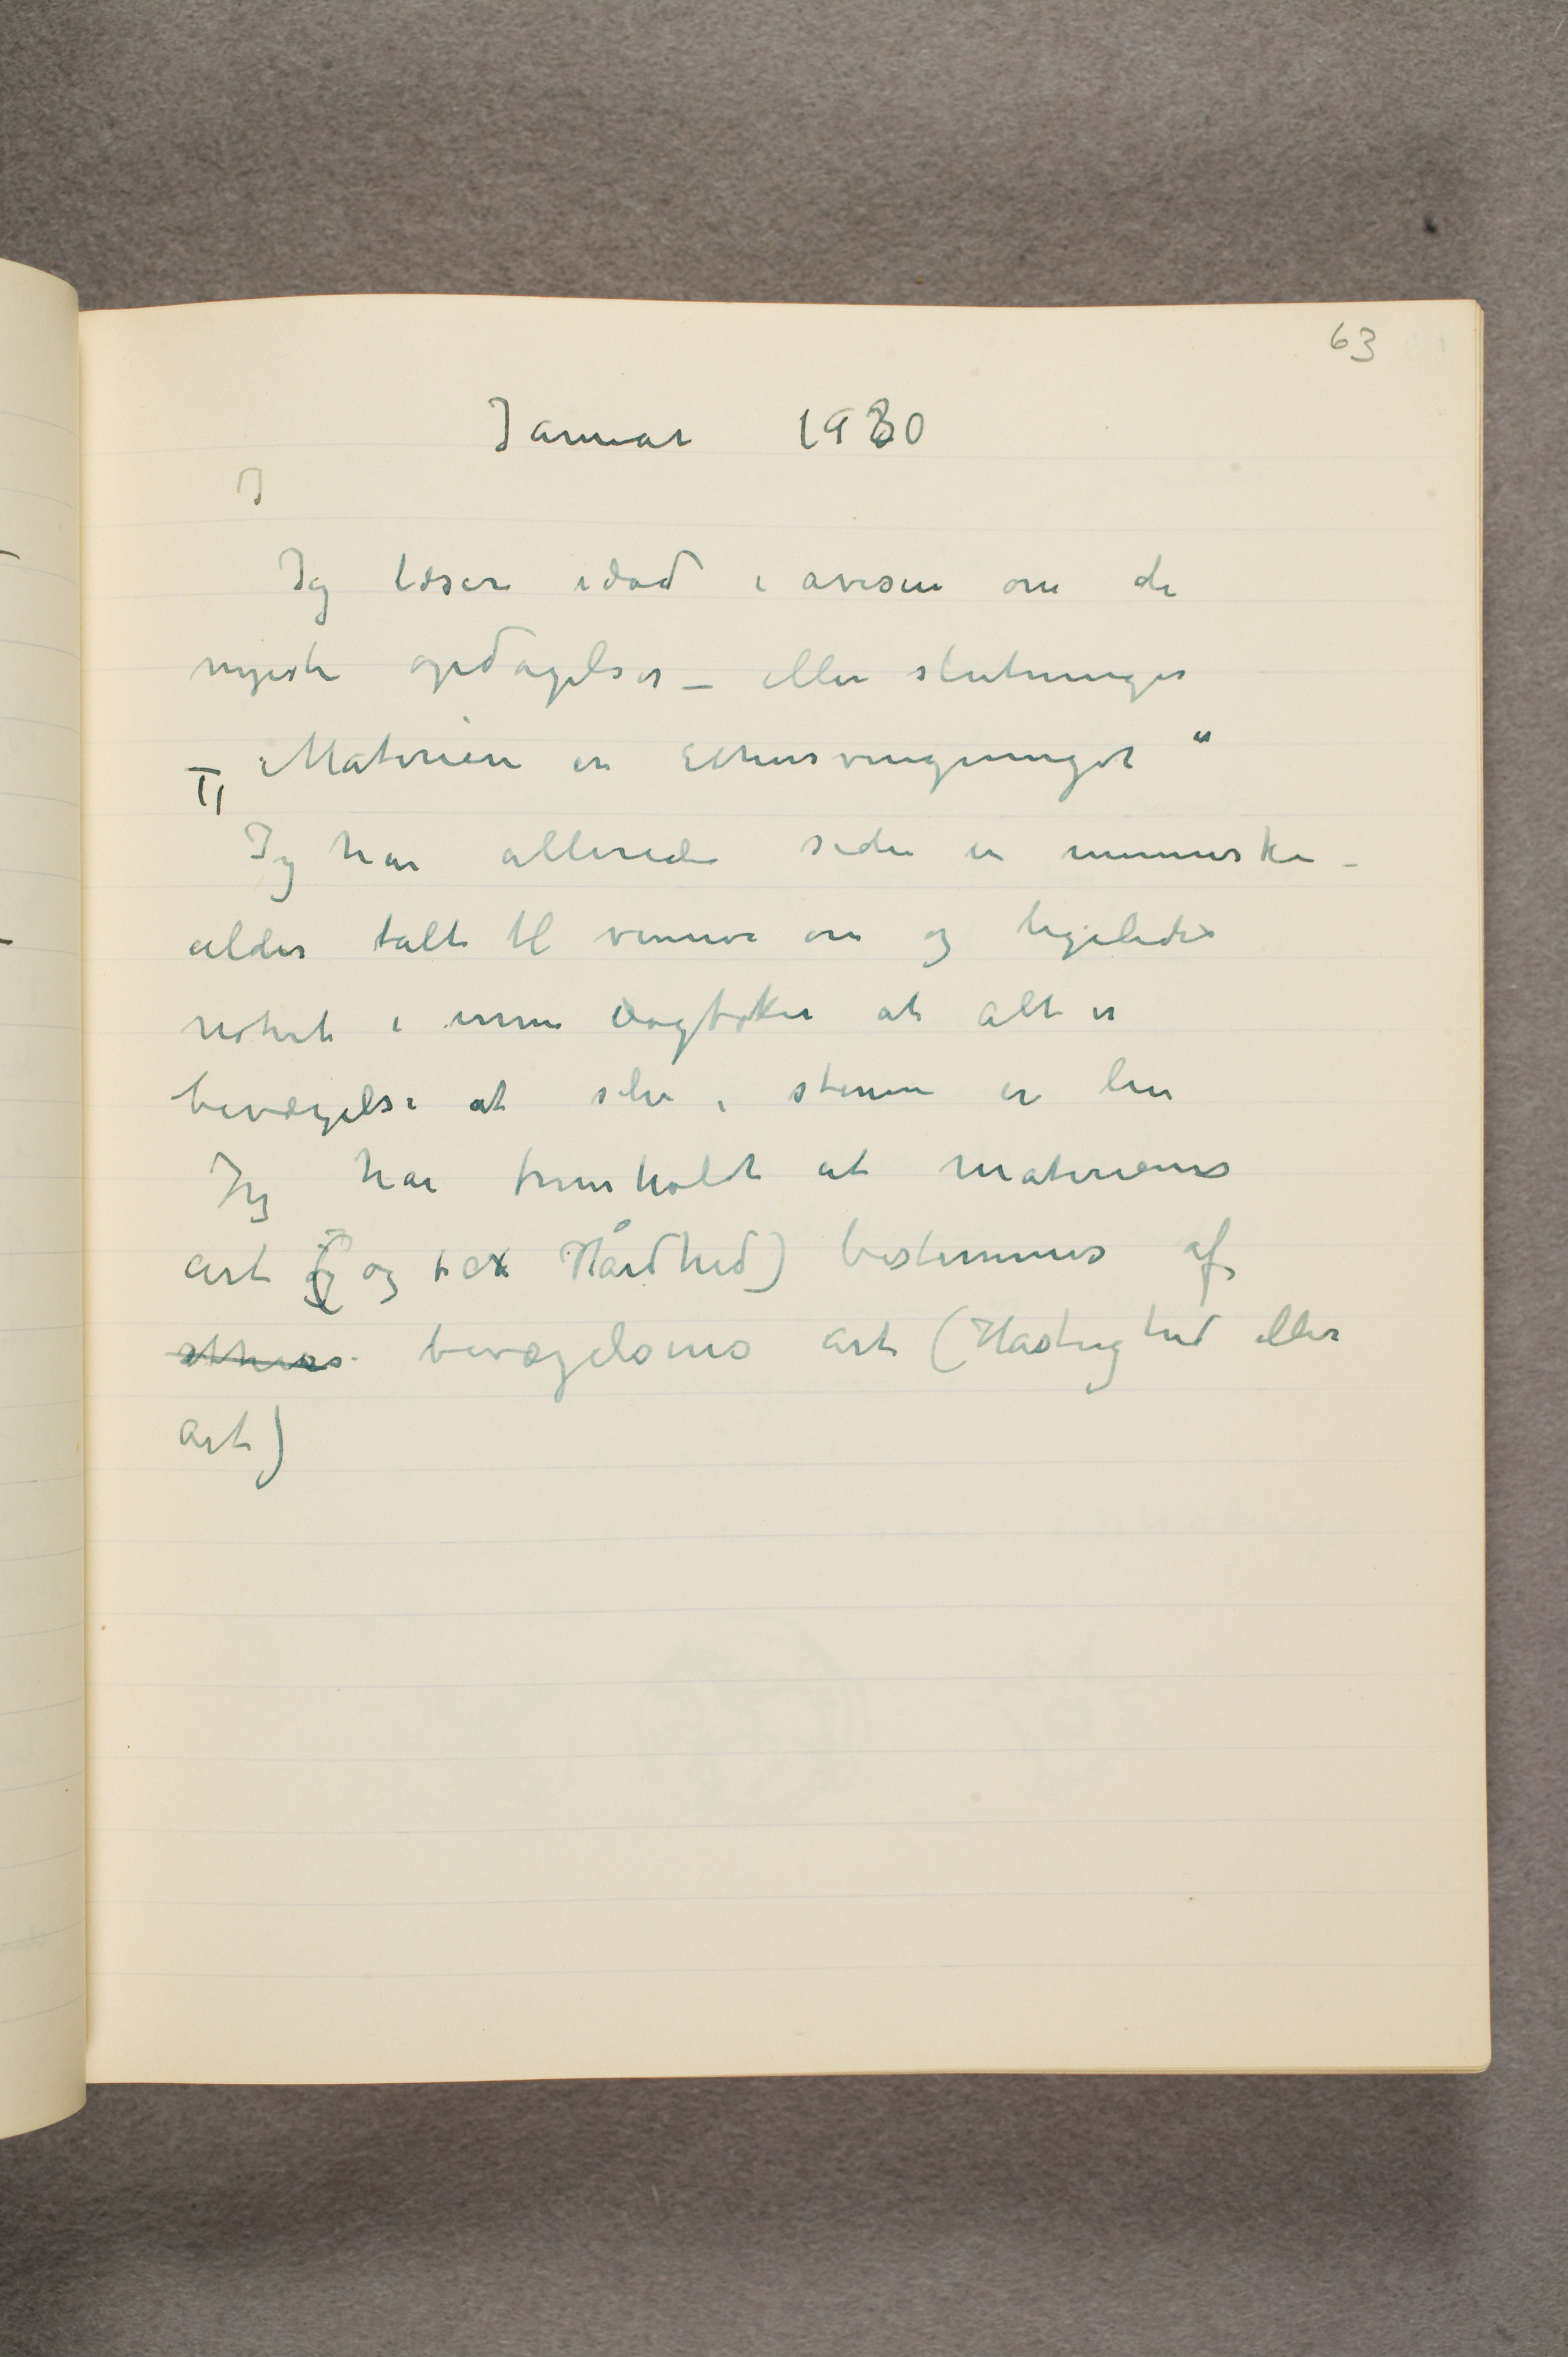 63
Januar 1930
J
Jeg læser idad i avisen om de
nyeste opdagelser – eller slutninger
– „Materien er Ethersvingninger“
Jeg har allerede siden en menneske-
alder talt til venner om og ligeledes
noteret i mine dagbøker at alt er
bevægelse at selv i stenen er liv
Jeg har fremholdt at materiens
art og f ex Hårdhed) bestemmes af
ethers bevægelsens art (Hastighed eller
art)